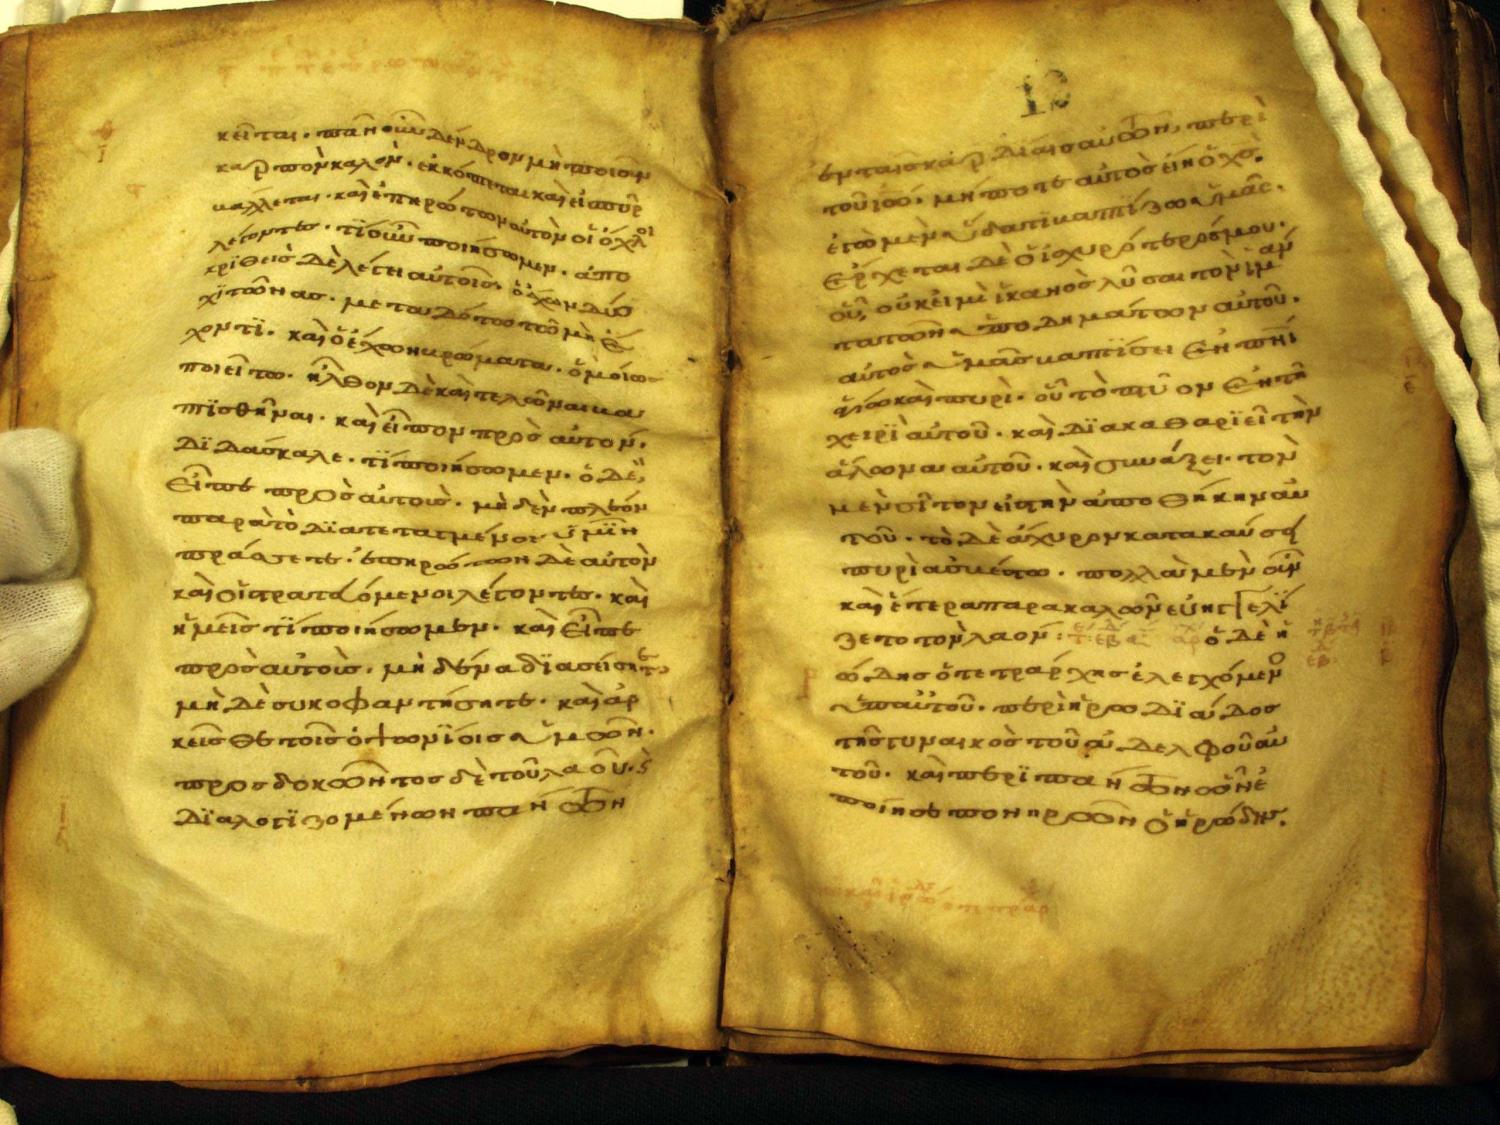 κεῖται· πᾶν οὖν δένδρον μὴ ποιοῦν
καρπὸν καλὸν· ἐκκόπτεται καὶ εἰς πῦρ
βάλλεται· καὶ ἐπηρώτων αὐτὸν οἱ ὄχλοι
λέγοντες· τί οὖν ποιήσωμεν· ἀπο
κριθεὶς δὲ λέγει αὐτοῖς· ὁ ἔχων δύο
χιτῶνας· μεταδότω τῷ μὴ ἔ
χοντι· καὶ ὁ ἔχων βρώματα· ὁμοίως
ποιείτω· ἦλθον δὲ καὶ τελῶναι βα
πτϊσθῆναι· καὶ εἶπον πρὸς αὐτόν·
δϊδάσκαλε· τί ποιήσωμεν· ὁ δὲ
εἶπε πρὸς αὐτοὺς· μηδὲν πλέον
παρὰ τὸ δϊατεταγμένον ὑμῖν
πράσσετε· ἐπηρώτων δὲ αὐτὸν
καὶ οἱ στρατευόμενοι λέγοντες· καὶ
ἡμεῖς τί ποιήσωμεν· καὶ εἶπε
πρὸς αὐτοὺς· μηδένα δϊασείσητε
μὴ δὲ συκοφαντήσητε· καὶ ἀρ
κεῖσθε τοῖς ὀψωνίοις ὑμῶν·
προσδοκῶντος δὲ τοῦ λαοῦ· ϗ
δϊαλογϊζομένων πάντων
12
ἐν ταῖς καρδίαις αὐτῶν, περὶ
τοῦ ἰω̅· μήποτε αὐτὸς εἴη ὁ χς̅·
ἐγὼ μὲν ὕδατι βαπτίζω ὑμᾶς·
ἔρχεται δὲ ὁ ἰσχυρότερός μου·
οὗ, οὐκ εἰμὶ ἱκανὸς λῦσαι τὸν ἱμάν
τα τῶν ὑποδημάτων αὐτοῦ·
αὐτὸς ὑμᾶς βαπτίσει ἐν πνι̅
ἁγίω καὶ πυρὶ· οὗ τὸ πτύον ἐν τῆ
χειρὶ αὐτοῦ· καὶ δϊακαθαρϊεῖ τὴν
ἅλωνα αὐτοῦ· καὶ συνάξει· τὸν
μὲν σῖτον εἰς τὴν ἀποθήκην αὐ
τοῦ· τὸ δὲ ἄχυρον κατακαύσει
πυρὶ ἀσβέστω· πολλὰ μὲν οὖν
καὶ ἕτερα παρακαλῶν εὐηγγελί
ζετο τὸν λαόν: ὁ δὲ ἡ
ρώδης ὁ τετράρχης ἐλεγχόμενος
ὑπ' αὐτοῦ· περὶ ἡρωδϊάδος
τῆς γυναικὸς τοῦ ἀδελφοῦ αὐ
τοῦ· καὶ περὶ πάντων ὧν ἐ
ποίησε πονηρῶν ὁ ἡρώδης·